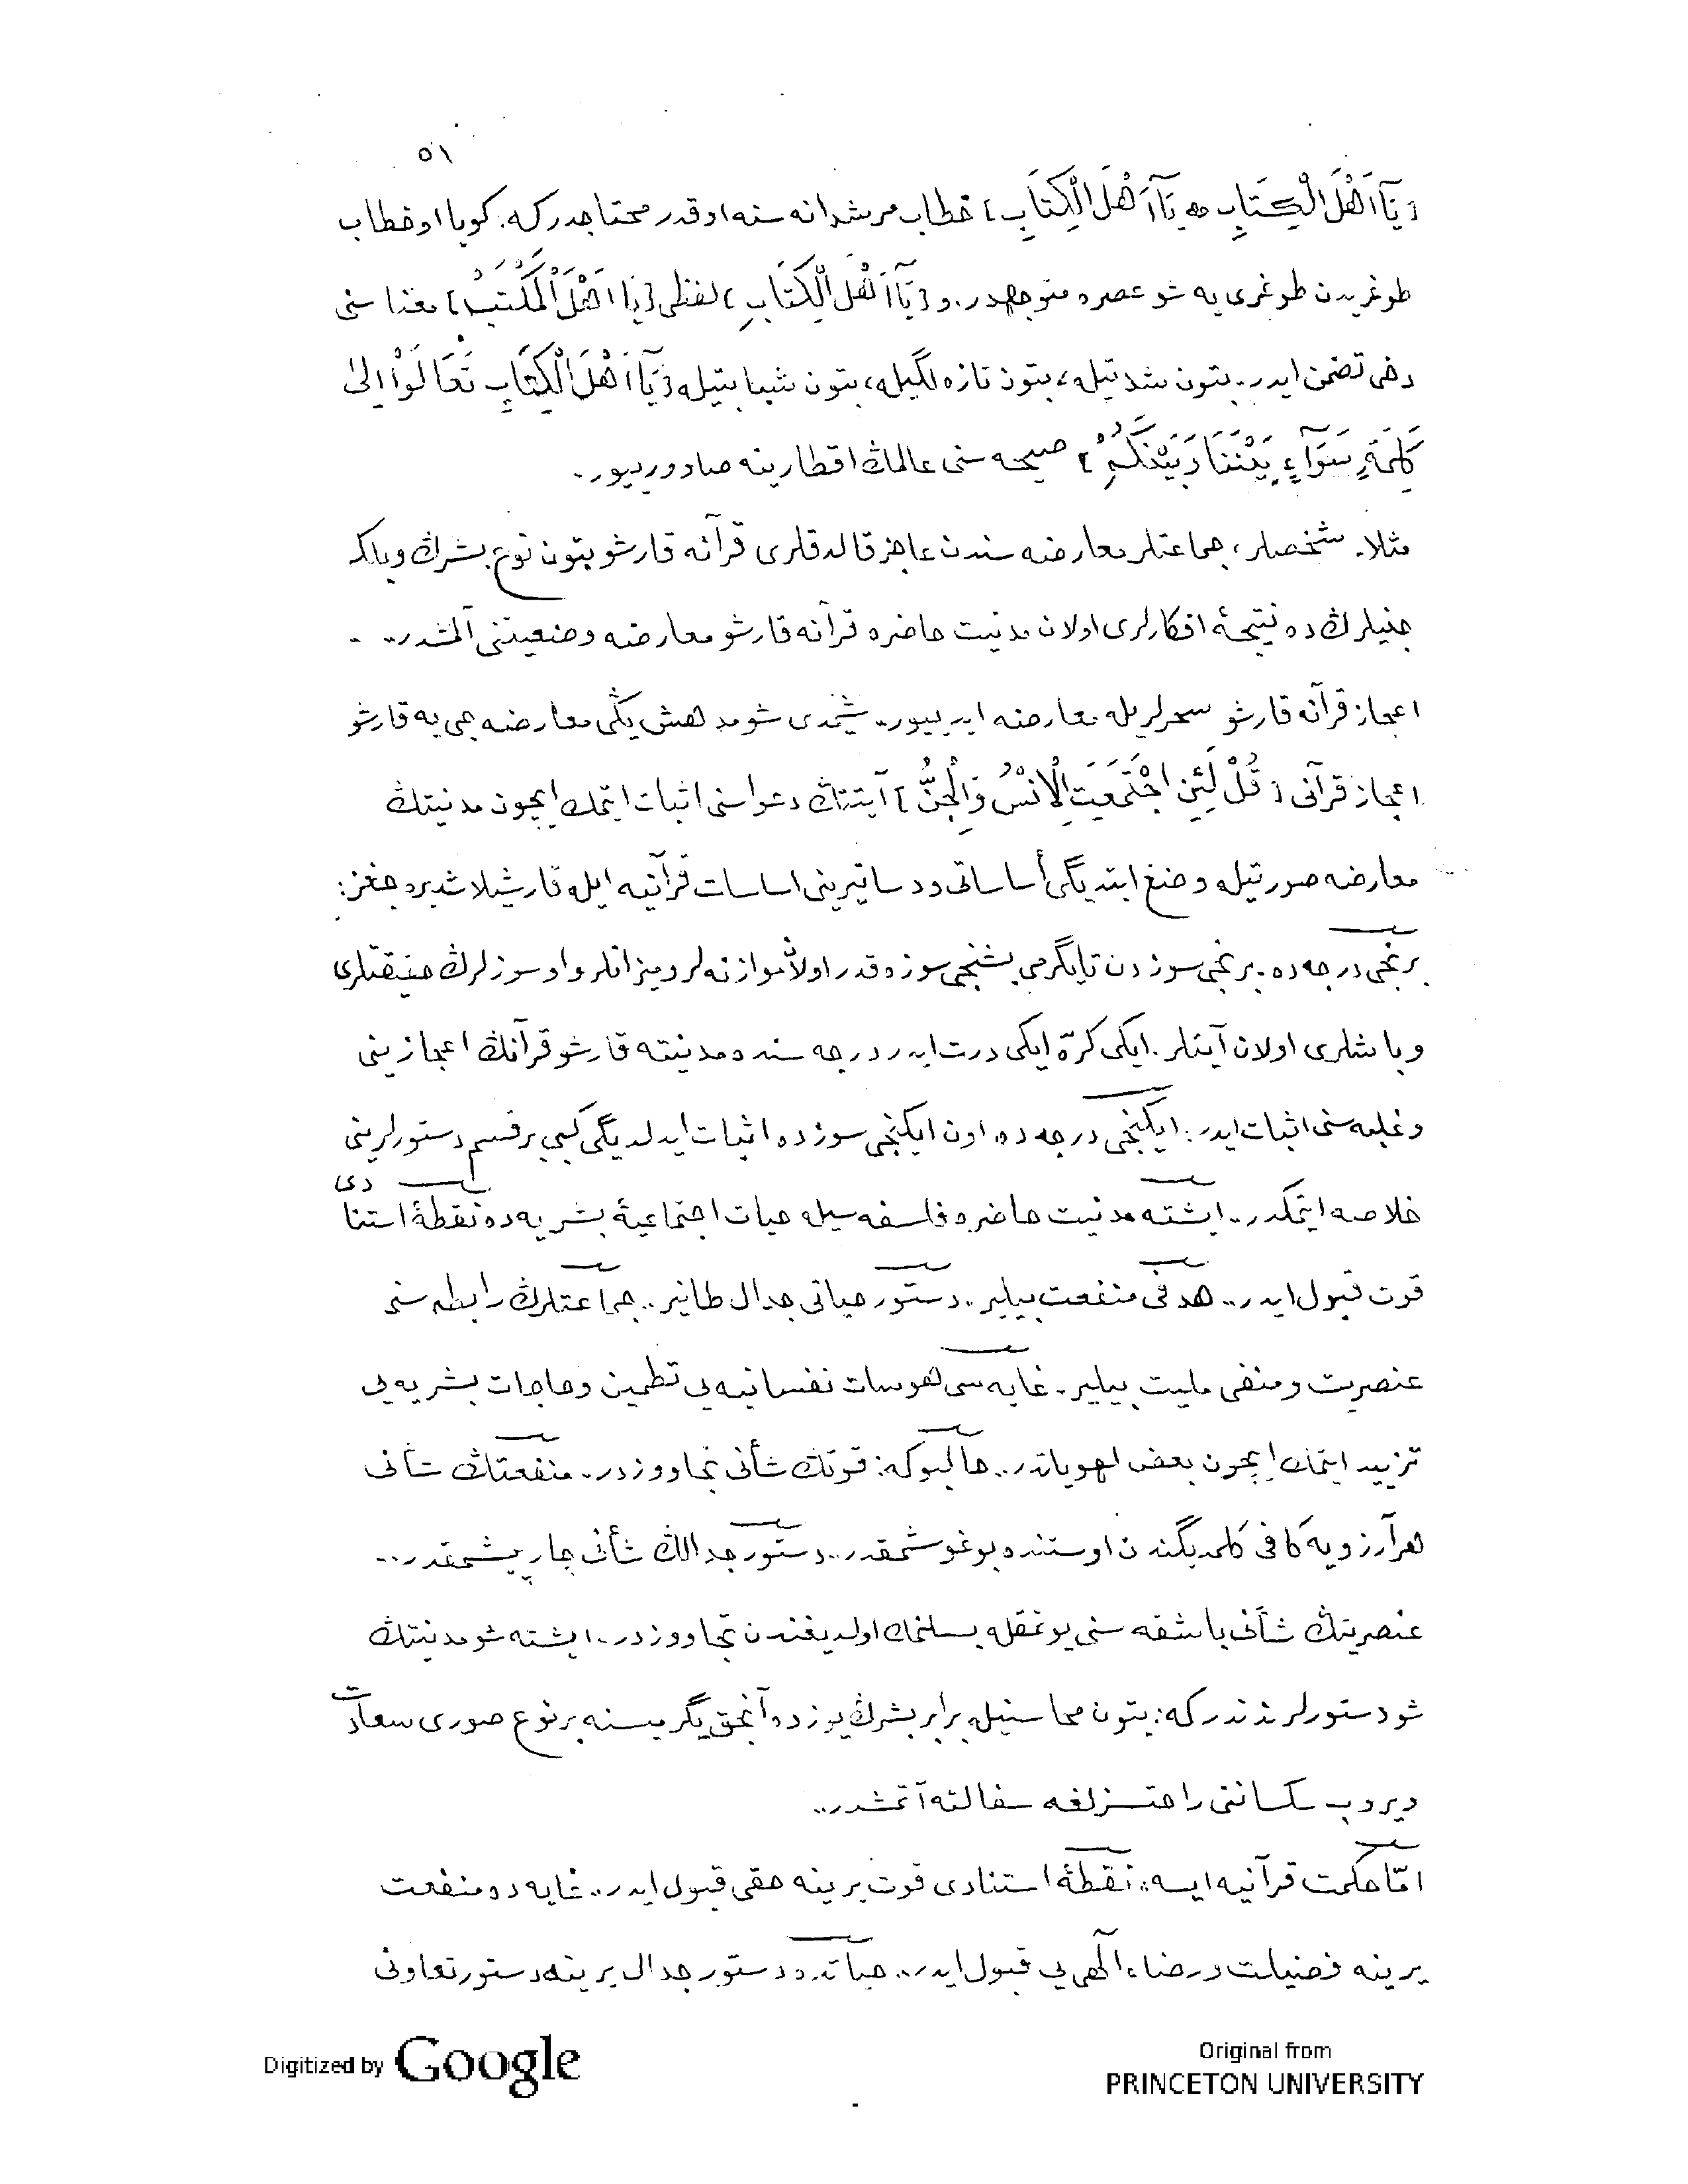 ٥١
﴿ يَآ اَهْلَ الْكِتَابِ ۞ يَآ اَهْلَ الْكِتَابِ ﴾ خطاب مرشدانه سنه او قدر محتاجدر كه: كويا او خطاب
طوغريدن طوغرى يه شو عصره متوجهدر. و ﴿ يَآ اَهْلَ الْكِتَابِ ﴾ لفظى ﴿ يَا اَهْلَ الْمَكْتَبْ ﴾ معناسنى
دخى تضمن ايدر. بتون شدتيله، بتون تازه لگيله، بتون شبابيتيله ﴿ يَآ اَهْلَ الْكِتَابِ تَعَالَوْا اِلٰى
كَلِمَةٍ سَوَآءٍ بَيْنَنَا وَبَيْنَكُمْ ﴾ صيحه سنى عالمڭ اقطارينه صاوورييور.
مثلا. شخصلر، جماعتلر معارضه سندن عاجز قالدقلرى قرآنه قارشو بتون نوع بشرڭ وبلكه
جنيلرڭ ده نتيجۀ افكارلرى اولان مدنيت حاضره قرآنه قارشو معارضه وضعيتنى آلمشدر..
اعجاز قرآنه قارشو سحرلريله معارضه ايدييور. شيمدى شو مدهش يڭى معارضه جى يه قارشو
اعجاز قرآنى ﴿ قُلْ لَئِنِ اجْتَمَعَتِ الْاِنْسُ وَالْجِنُّ ﴾ آيتنڭ دعواسنى اثبات ايتمك ايچون مدنيتڭ
معارضه صورتيله وضع ايتديگى أساساتى و دساتيرينى اساسات قرآنيه ايله قارشيلاشديره جغز:
برنجى درجه ده. برنجى سوزدن تا يگرمى بشنجى سوزه قدر اولان موازنه لر و ميزانلر و او سوزلرڭ حقيقتلرى
و باشلرى اولان آيتلر. ايكى كرّه ايكى درت ايدر درجه سنده مدنيته قارشو قرآنڭ اعجازينى
و غلبه سنى اثبات ايدر: ايكنجى درجه ده، اون ايكنجى سوزده اثبات ايدلديگى كبى بر قسم دستورلرينى
خلاصه ايتمكدر. ايشته مدنيت حاضره فلسفه سيله حيات اجتماعيۀ بشريه ده نقطۀ استنادى
قوت قبول ايدر.. هدفى منفعت بيلير.. دستور حياتى جدال طانير.. جماعتلرڭ رابطه سنى
عنصريت و منفى مليت بيلير. غايه سى هوسات نفسانيه يى تطمين و حاجات بشريه يى
تزييد ايتمك ايچون بعض لهوياتدر.. حالبوكه: قوتڭ شأنى تجاووزدر. منفعتڭ شأنى
هر آرزويه كافى كلمديگندن اوستنده بوغوشمقدر.. دستور جدالڭ شأنى چارپيشمقدر..
عنصريتڭ شأنى باشقه سنى يوتمقله بسلنمك اولديغندن تجاووزدر.. ايشته شو مدنيتڭ
شو دستورلرندندر كه: بتون محاسنيله برابر بشرڭ يوزده آنجق يگرميسنه بر نوع صورى سعادت
ويروب سكساننى راحتسزلغه سفالته آتمشدر..
امّا حكمت قرآنيه ايسه: نقطۀ استنادى قوت يرينه حقى قبول ايدر.. غايه ده منفعت
يرينه فضيلت و رضاء الٓهى يى قبول ايدر.. حياتده دستور جدال يرينه دستور تعاونى
Digitized by Google
Original from
PRINCETON UNIVERSITY